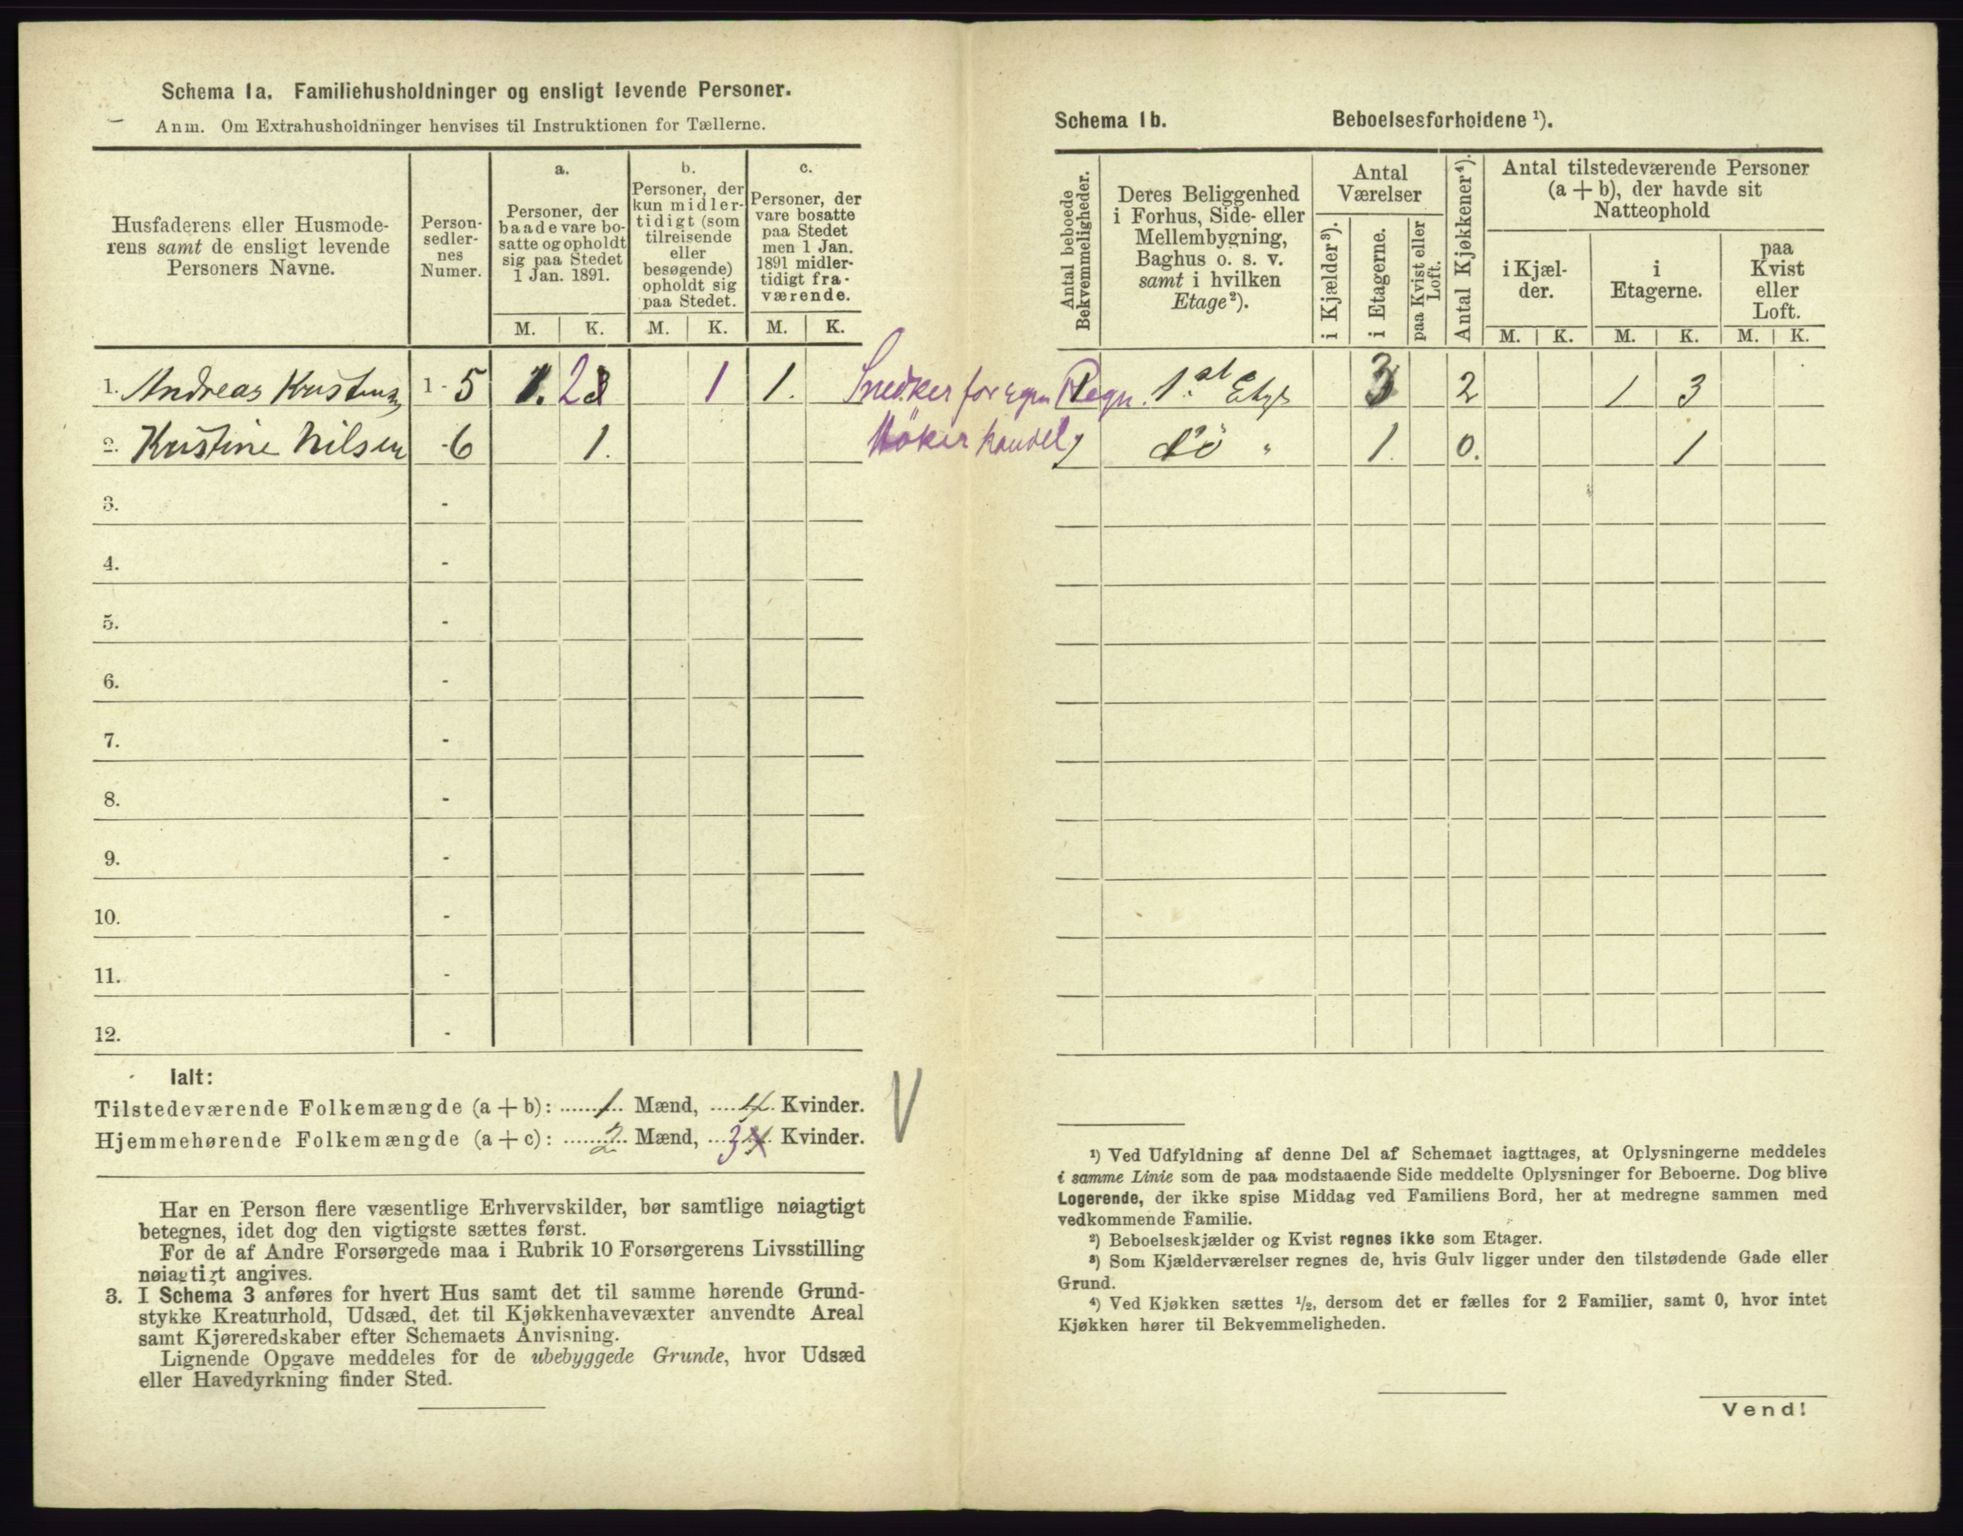 Schema 1a. Familiehusholdninger og ensligt levende Personer.
Anm. Om Extrahusholdninger henvises til Instruktionen for Tællerne.
Husfaderens eller Husmode-
rens samt de ensligt levende
Personers Navne.
Person-
sedler-
nes
Numer.
a.
Personer, der
baade vare bo-
satte og opholdt
sig paa Stedet
1 Jan. 1891.
b.
Personer, der
kun midler-
tidigt (som
tilreisende
eller
besøgende)
opholdt sig
paa Stedet.
c.
Personer, der
vare bosatte
paa Stedet
men 1 Jan.
1891 midler-
tidigt fra-
værende.
M. K. M. K. M. K.
1. Andreas Kristensen 1 - 5 1. 2 1 1. Snedker for egen Regn.
2. Kristine Nilsen - 6 1. Høker handel
3. -
4. -
5. -
6. -
7. -
8. -
9. -
10. -
11. -
12. -
Ialt:
Tilstedeværende Folkemængde (a + b): 1 Mænd, 4 Kvinder.
Hjemmehørende Folkemængde (a + c): 2 Mænd, 3 4 Kvinder.
Har en Person flere væsentlige Erhvervskilder, bør samtlige nøiagtigt
betegnes, idet dog den vigtigste sættes først.
For de af Andre Forsørgede maa i Rubrik 10 Forsørgerens Livsstilling
nøiagtigt angives.
3. I Schema 3 anføres for hvert Hus samt det til samme hørende Grund-
stykke Kreaturhold, Udsæd, det til Kjøkkenhavevæxter anvendte Areal
samt Kjøreredskaber efter Schemaets Anvisning.
Lignende Opgave meddeles for de ubebyggede Grunde, hvor Udsæd
eller Havedyrkning finder Sted.
Schema 1b. Beboelsesforholdene ¹).
Antal beboede
Bekvemmeligheder.
Deres Beliggenhed
i Forhus, Side- eller
Mellembygning,
Baghus o. s. v.
samt i hvilken
Etage²).
Antal
Værelser
i Kjælder³).
i Etagerne.
paa Kvist eller
Loft.
Antal Kjøkkener⁴).
Antal tilstedeværende Personer
(a + b), der havde sit
Natteophold
i Kjæl-
der.
i
Etagerne.
paa
Kvist
eller
Loft.
M. K. M. K. M. K.
1 1.st Etage 3 2 1 3
1 do " 1. 0. 1
¹) Ved Udfyldning af denne Del af Schemaet iagttages, at Oplysningerne meddeles
i samme Linie som de paa modstaaende Side meddelte Oplysninger for Beboerne. Dog blive
Logerende, der ikke spise Middag ved Familiens Bord, her at medregne sammen med
vedkommende Familie.
²) Beboelseskjælder og Kvist regnes ikke som Etager.
³) Som Kjælderværelser regnes de, hvis Gulv ligger under den tilstødende Gade eller
Grund.
⁴) Ved Kjøkken sættes ½, dersom det er fælles for 2 Familier, samt 0, hvor intet
Kjøkken hører til Bekvemmeligheden.
Vend!